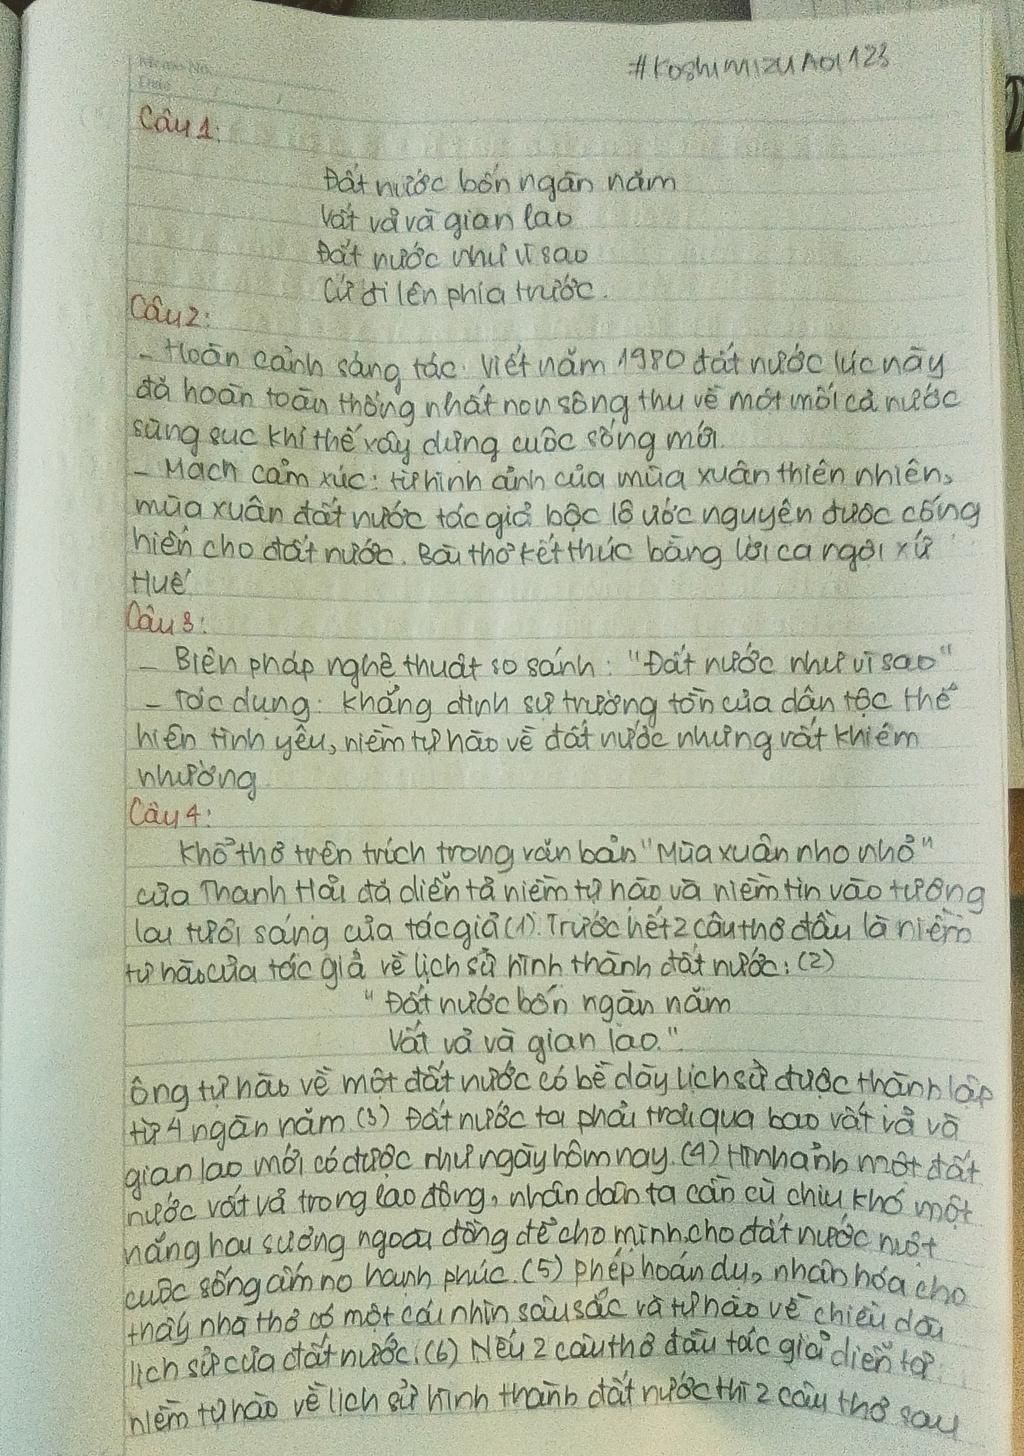 Memo No.
Date / /
#KoshimizuAoi123
Câu 1:
Đất nước bốn ngàn năm
Vất vả và gian lao
Đất nước như vì sao
Cứ đi lên phía trước.
Câu 2:
- Hoàn cảnh sáng tác: Viết năm 1980 đất nước lúc này
đã hoàn toàn thống nhất non sông thu về một mối cả nước
sùng sục khí thế xây dựng cuộc sống mới.
- Mạch cảm xúc: từ hình ảnh của mùa xuân thiên nhiên,
mùa xuân đất nước tác giả bộc lộ ước nguyện được cống
hiến cho đất nước. Bài thơ kết thúc bằng lời ca ngợi xứ
Huế
Câu 3:
- Biện pháp nghệ thuật so sánh: "Đất nước như vì sao"
- Tác dụng: khẳng định sự trường tồn của dân tộc thể
hiện tình yêu, niềm tự hào về đất nước nhưng rất khiêm
nhường.
Câu 4:
Khổ thơ trên trích trong văn bản "Mùa xuân nho nhỏ"
của Thanh Hải đã diễn tả niềm tự hào và niềm tin vào tương
lai tươi sáng của tác giả (1). Trước hết 2 câu thơ đầu là niềm
tự hào của tác giả về lịch sử hình thành đất nước: (2)
"Đất nước bốn ngàn năm
Vất vả và gian lao."
Ông tự hào về một đất nước có bề dày lịch sử được thành lập
từ 4 ngàn năm (3) Đất nước ta phải trải qua bao vất vả và
gian lao mới có được như ngày hôm nay. (4) Hình ảnh một đất
nước vất vả trong lao động, nhân dân ta cần cù chịu khó một
nắng hai sương ngoài đồng để cho mình, cho đất nước một
cuộc sống ấm no hạnh phúc. (5) phép hoán dụ, nhân hóa cho
thấy nhà thơ có một cái nhìn sâu sắc và tự hào về chiều dài
lịch sử của đất nước. (6) Nếu 2 câu thơ đầu tác giả diễn tả
niềm tự hào về lịch sử hình thành đất nước thì 2 câu thơ sau